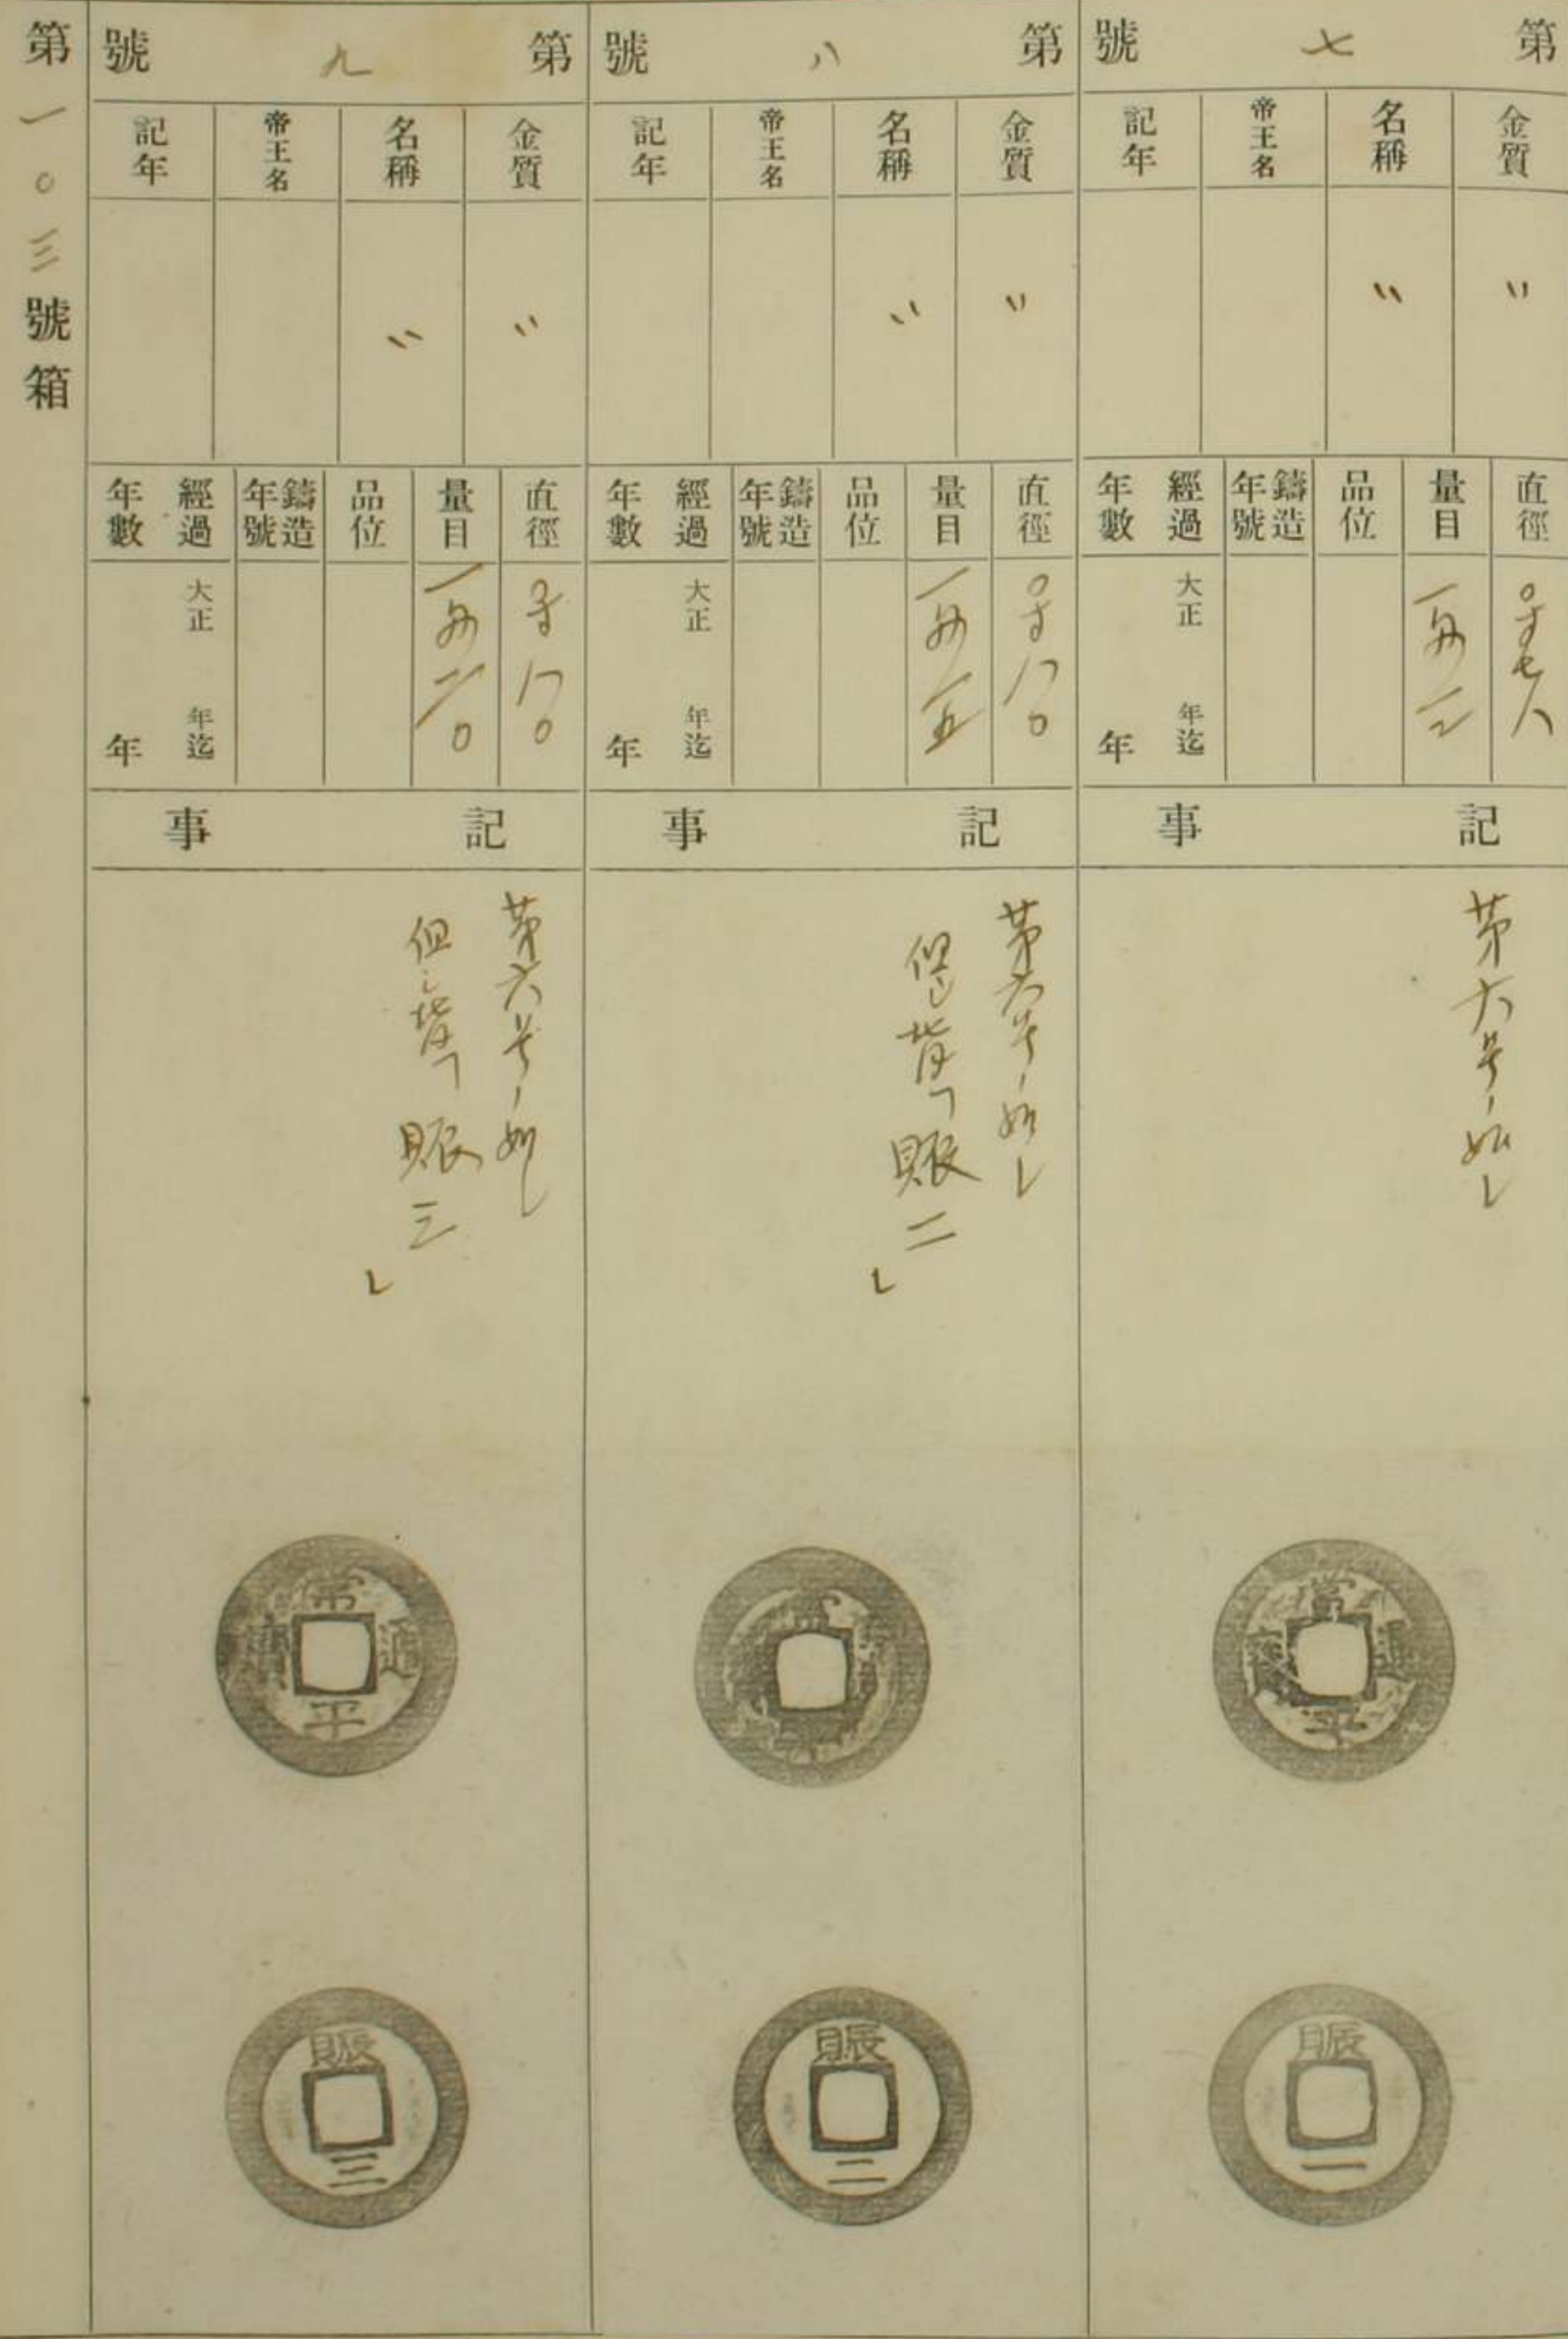 第 七 號
金質 〃
名稱 〃
帝王名
記年
直徑 〇寸七八
量目 一匁一二
品位
鑄造年號
經過年數 大正 年迄 年
記事
第六号ノ如シ
常平通寳
賑 一
第 八 號
金質 〃
名稱 〃
帝王名
記年
直徑 〇寸八〇
量目 一匁一五
品位
鑄造年號
經過年數 大正 年迄 年
記事
第六号ノ如シ
但シ背「賑二」
賑 二
第 九 號
金質 〃
名稱 〃
帝王名
記年
直徑 〇寸八〇
量目 一匁二〇
品位
鑄造年號
經過年數 大正 年迄 年
記事
第六号ノ如シ
但シ背「賑三」
常平通寳
賑 三
第一〇三號箱